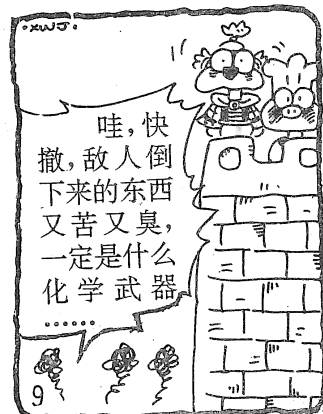 ·XWJ·
哇,快
撤,敌人倒
下来的东西
又苦又臭,
一定是什么
化学武器
……
9